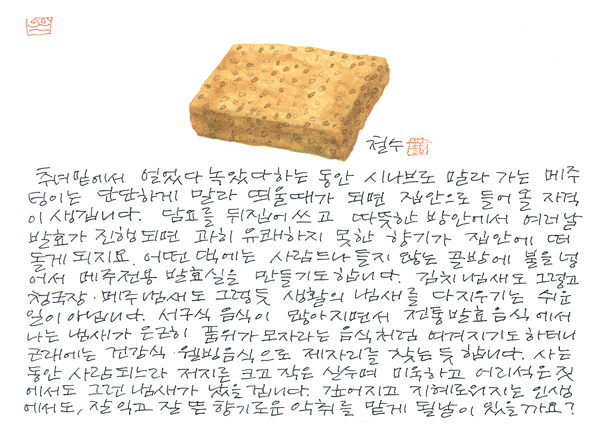 철수
추녀밑에서 얼었다 녹았다 하는 동안 시나브로 말라 가는 메주
덩이는 단단하게 말라 띄울때가 되면 집안으로 들어 올 자격
이 생깁니다. 담요를 뒤집어쓰고 따뜻한 방안에서 여러날
발효가 진행되면 과히 유쾌하지 못한 향기가 집안에 떠
돌게 되지요. 어떤 댁에는 사람드나들지 않는 골방에 불을 넣
어서 메주전용 발효실을 만들기도 합니다. 김치냄새도 그렇고
청국장·메주냄새도 그렇듯 생활의 냄새를 다 지우기는 쉬운
일이 아닙니다. 서구식 음식이 많아지면서 전통발효음식에서
나는 냄새가 은근히 품위가 모자라는 음식처럼 여겨지기도 하더니
근래에는 건강식·웰빙음식으로 제자리를 찾는 듯 합니다. 사는
동안 사람되느라 저지른 크고 작은 실수며 미욱하고 어리석은 짓
에서도 그런 냄새가 났을겁니다. 깊어지고 지혜로워지는 인생
에서도, 잘 익고 잘 뜬 향기로운 악취를 맡게 될날이 있을까요?